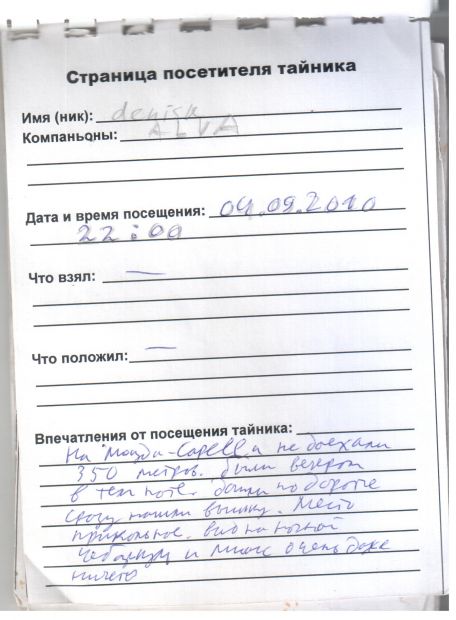 Страница посетителя тайника
Имя (ник): denisk
Компаньоны: ALVA
Дата и время посещения: 04.09.2010
22:00
Что взял: —
Что положил: —
Впечатления от посещения тайника:
На Мазда-Capella не доехали
350 метров. были вечером
в темноте. дошли по дороге
сразу нашли вышку. Место
прикольное. вид на ночной
Чебаркуль и Миасс очень даже
ничего